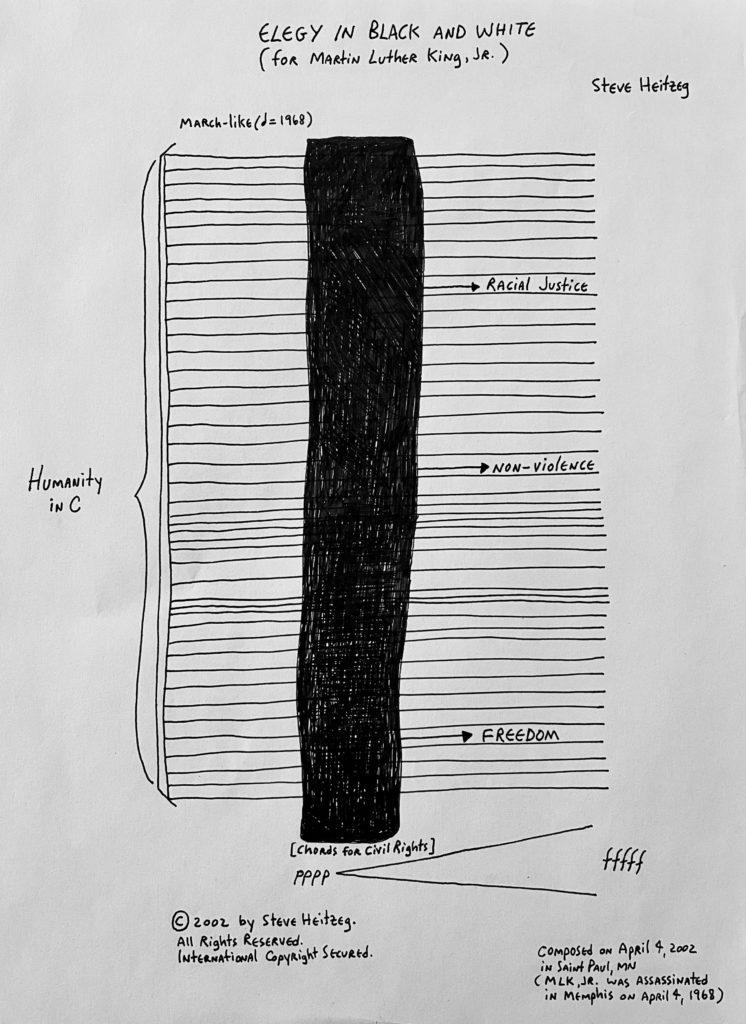 ELEGY IN BLACK AND WHITE
(for MARTIN LUTHER KING, JR.)
Steve Heitzeg
MARCH-LIKE (♩=1968)
RACIAL JUSTICE
NON-VIOLENCE
HUMANITY
IN C
FREEDOM
[CHORDS FOR CIVIL RIGHTS]
pppp
fffff
© 2002 by STEVE HEITZEG.
ALL RIGHTS RESERVED.
INTERNATIONAL COPYRIGHT SECURED.
COMPOSED ON APRIL 4, 2002
IN SAINT PAUL, MN
(MLK, JR. WAS ASSASSINATED
IN MEMPHIS ON APRIL 4, 1968)